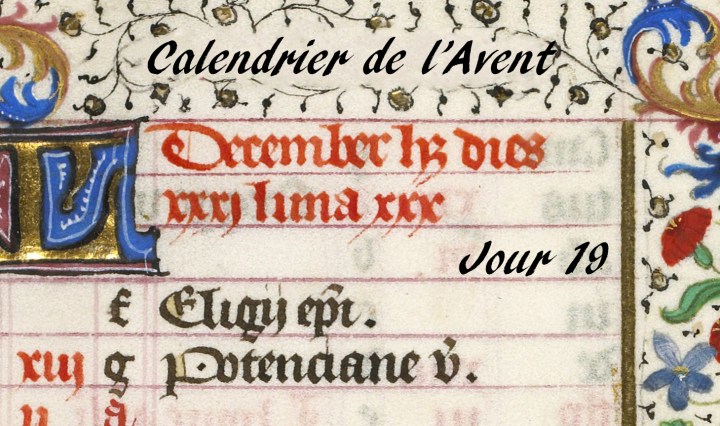 Calendrier de l'Avent
KL
December hꝫ dies
xxxi luna xxx
Jour 19
f Eligij epi.
xiij g Potenciane v.
ij a